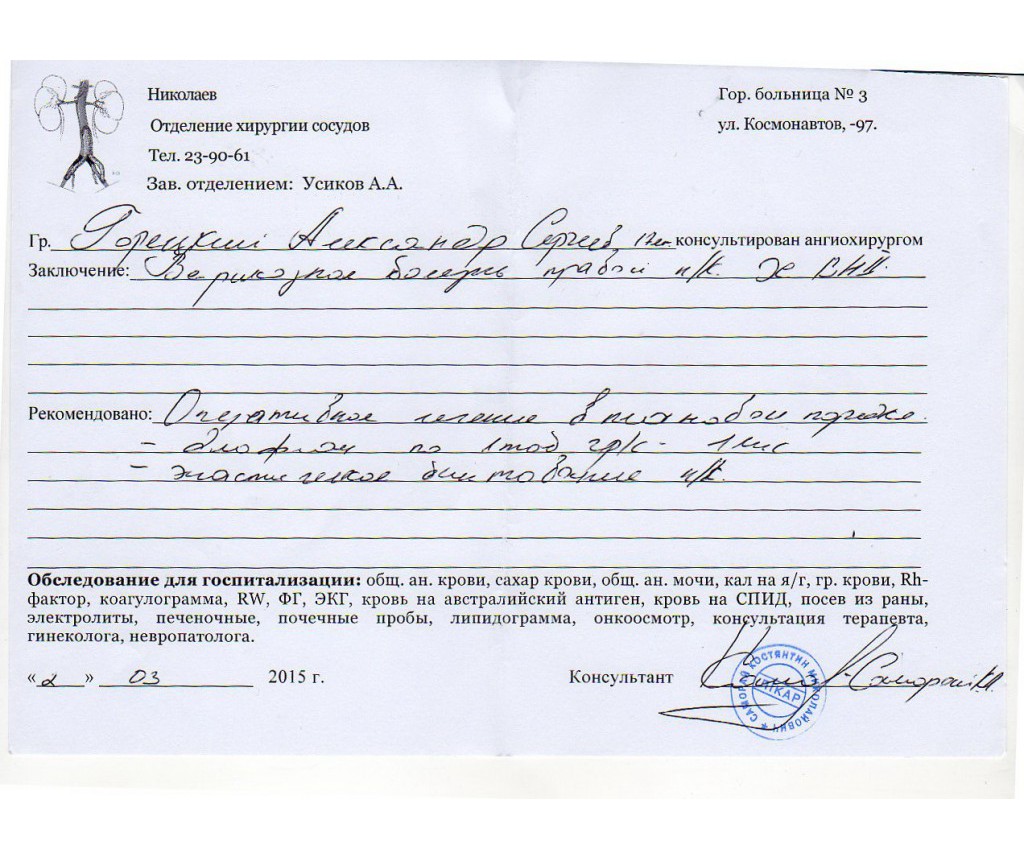 Николаев
Гор. больница № 3
Отделение хирургии сосудов
ул. Космонавтов, -97.
Тел. 23-90-61
Зав. отделением: Усиков А.А.
Гр. Горецкий Александр Сергеев, консультирован ангиохирургом
Заключение: Варикозная болезнь правой н/к.
Рекомендовано: Оперативное лечение в плановом порядке.
- по 1 таб - 1 мес
- эластическое бинтование н/к.
Обследование для госпитализации: общ. ан. крови, сахар крови, общ. ан. мочи, кал на я/г, гр. крови, Rh-
фактор, коагулограмма, RW, ФГ, ЭКГ, кровь на австралийский антиген, кровь на СПИД, посев из раны,
электролиты, печеночные, почечные пробы, липидограмма, онкоосмотр, консультация терапевта,
гинеколога, невропатолога.
«2» 03 2015 г.
Консультант Саморай К.Н.
САМОРАЙ КОСТЯНТИН МИКОЛАЙОВИЧ
ЛІКАР